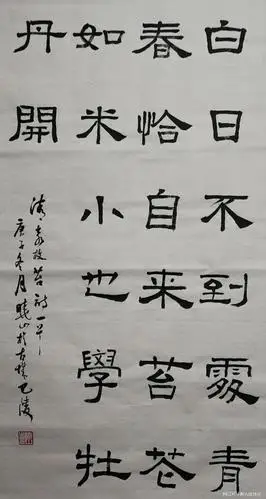 白日不到處青
春恰自来苔花
如米小也學牡
丹開
清袁枚苔詩一首
庚子冬月曉山於古巴陵